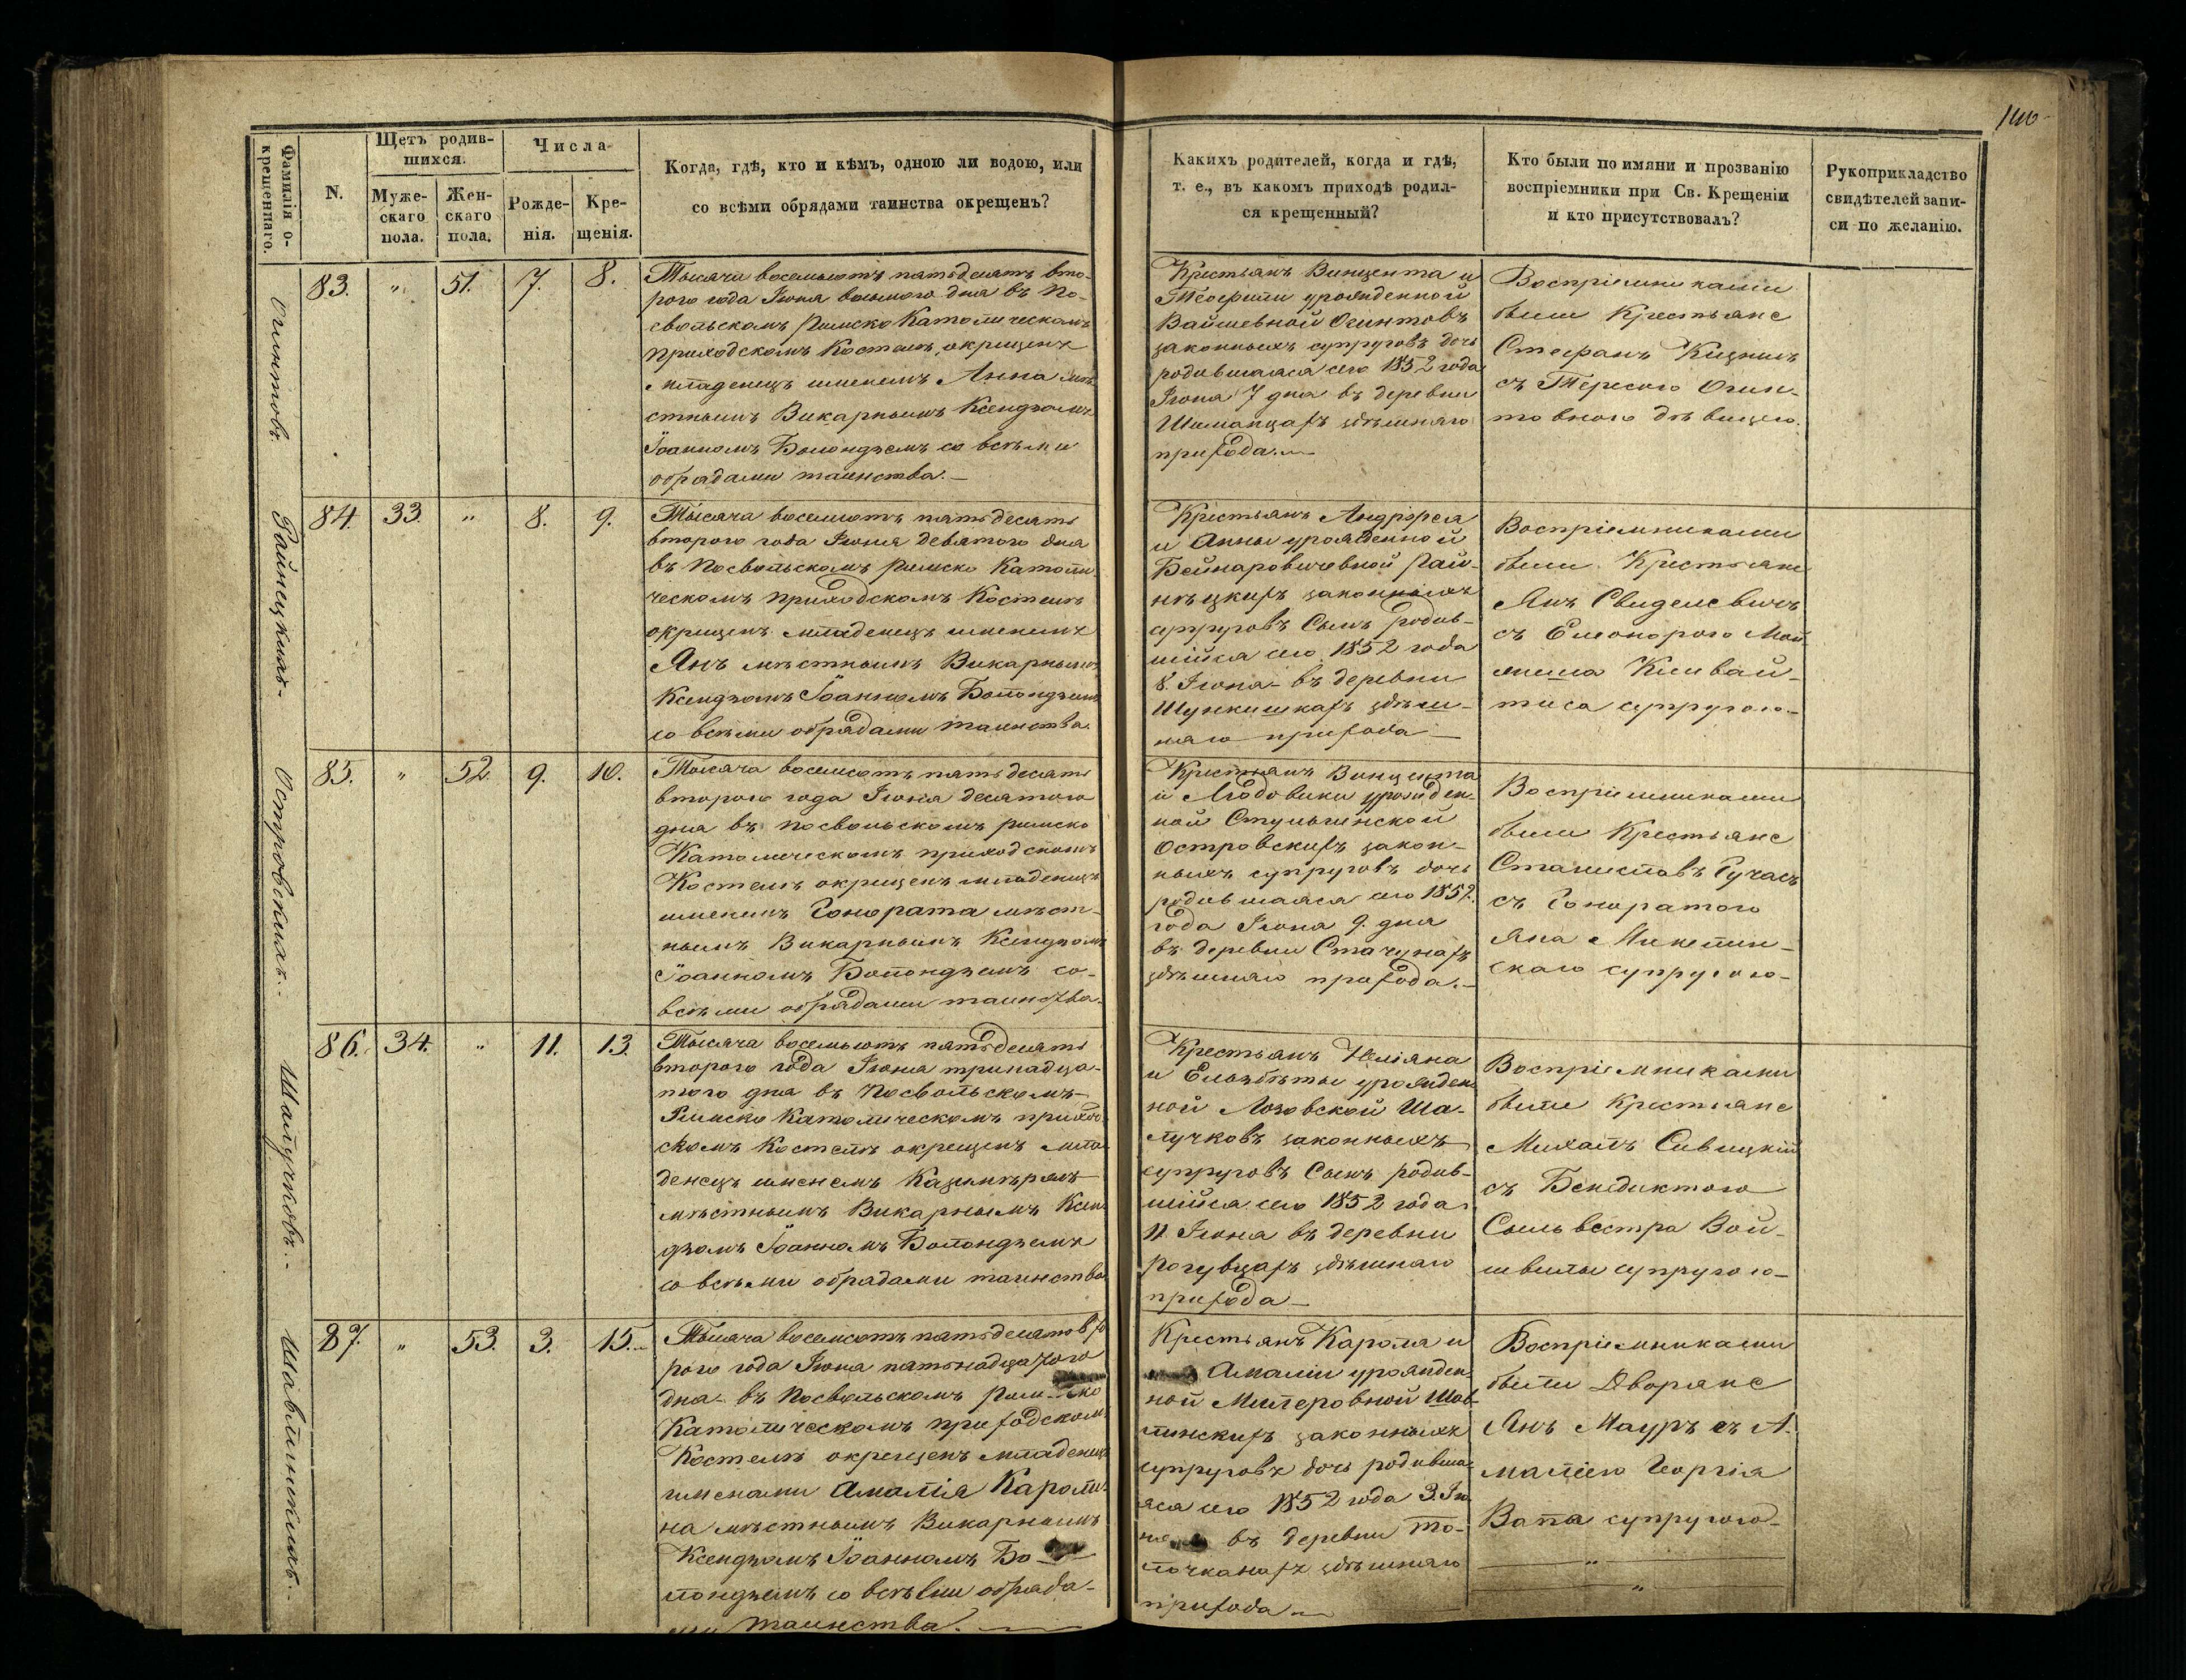 140
Фамилія о-
крещеннаго.
N.
Щетъ родив-
шихся.
Муже-
скаго
пола.
Жен-
скаго
пола.
Числа
Рожде-
нія.
Кре-
щенія.
Когда, гдѣ, кто и кѣмъ, одною ли водою, или
со всѣми обрядами таинства окрещенъ?
Какихъ родителей, когда и гдѣ,
т. е., въ какомъ приходѣ родил-
ся крещенный?
Кто были по имяни и прозванію
воспріемники при Св. Крещеніи
и кто присутствовалъ?
Рукоприкладство
свидѣтелей запи-
си по желанію.
Огинтовъ.
83. " 51. 7. 8.
Тысяча восемьсотъ пятьдесятъ вто-
рого года Іюня восьмого дня въ По-
свольскомъ Римско Католическомъ
приходскомъ Костелѣ окрещенъ
младенецъ именемъ Анна мѣ-
стнымъ Викарнымъ Ксендзомъ
Іоанномъ Болондземъ со всѣми
обрядами таинства.—
Крестьянъ Винцента и
Теофили урожденной
Вайшевной Огинтовъ
законныхъ супруговъ дочь
родившаяся сего 1852 года
Іюня 7 дня въ деревни
Шиманцахъ здѣшняго
прихода.—
Воспріемниками
были Крестьяне
Стефанъ
съ Тересою Огин-
товною дѣвицею.
Райнецкихъ.
84. 33. " 8. 9.
Тысяча восемсотъ пятьдесятъ
второго года Іюня девятого дня
въ Посвольскомъ Римско Католи-
ческомъ приходскомъ Костелѣ
окрещенъ младенецъ именемъ
Янъ мѣстнымъ Викарнымъ
Ксендзомъ Іоанномъ Болондземъ
со всѣми обрядами таинства.
Крестьянъ Андржея
и Анны урожденной
Бейнаровичевной Рай-
нѣцкихъ законныхъ
супруговъ Сынъ родив-
шійся сего 1852 года
8. Іюня въ деревни
Шункишкахъ здѣш-
няго прихода—
Воспріемниками
были Крестьяне
Янъ Свиделевичъ
съ Елеонорою

тиса супругою.—
Островскихъ.
85. " 52. 9. 10.
Тысяча восемсотъ пятьдесятъ
второго года Іюня десятого
дня въ Посвольскомъ римско
Католическомъ приходскомъ
Костелѣ окрещенъ младенецъ
именемъ Гонората мѣст-
нымъ Викарнымъ Ксендзомъ
Іоанномъ Болондземъ со-
всѣми обрядами таинства.
Крестьянъ Винцента
и Людовики урожден-
ной Стульгинской
Островскихъ закон-
ныхъ супруговъ дочь
родившаяся сего 1852.
года Іюня 9. дня
въ деревни Стачунахъ
здѣшняго прихода.—
Воспріемниками
были Крестьяне
Станиславъ Гучасъ
съ Гоноратою
Яна Микелин-
скаго супругою—
Шалучковъ.
86. 34. " 11. 13.
Тысяча восемьсотъ пятьдесятъ
второго года Іюня тринадца-
того дня въ Посвольскомъ—
Римско Католическомъ приход-
скомъ Костелѣ окрещенъ мла-
денецъ именемъ Казимѣрамъ
мѣстнымъ Викарнымъ Ксен-
дзомъ Іоанномъ Болондземъ
со всѣми обрядами таинства
Крестьянъ Юліяна
и Ельжбѣты урожден
ной Лозовской Ша-
лучковъ законныхъ
супруговъ Сынъ родив-
шійся сего 1852 года
11. Іюня въ деревни
Рогувцахъ здѣшнаго
прихода—
Воспріемниками
были Крестьяне
Михалъ Сивицкій
съ Бенедиктою
Сыльвестра Вой-
швилы супругою—
Шавлинскихъ.
87. " 53. 3. 15.
Тысяча восемсотъ пятьдесятов то
рого года Іюня пятьнадцатого
дня въ Посвольскомъ Римско
Католическомъ приходском
Костелѣ окрещенъ младенец
именами Амалія Кароли-
на мѣстнымъ Викарнымъ
Ксендзомъ Іоанномъ Бо-
лондземъ со всѣми обряда-
ми таинства.—
Крестьянъ Кароля и
Амаліи урожден-
ной Милеровной Шав-
линскихъ законныхъ
супруговъ дочь родивша-
яся сего 1852 года 3. Ію
ня въ деревни То-
лочканахъ здѣшняго
прихода—
Воспріемниками
были Дворяне
Янъ Мауръ съ А-
маліею Георгія
Вала супругою—
"
"